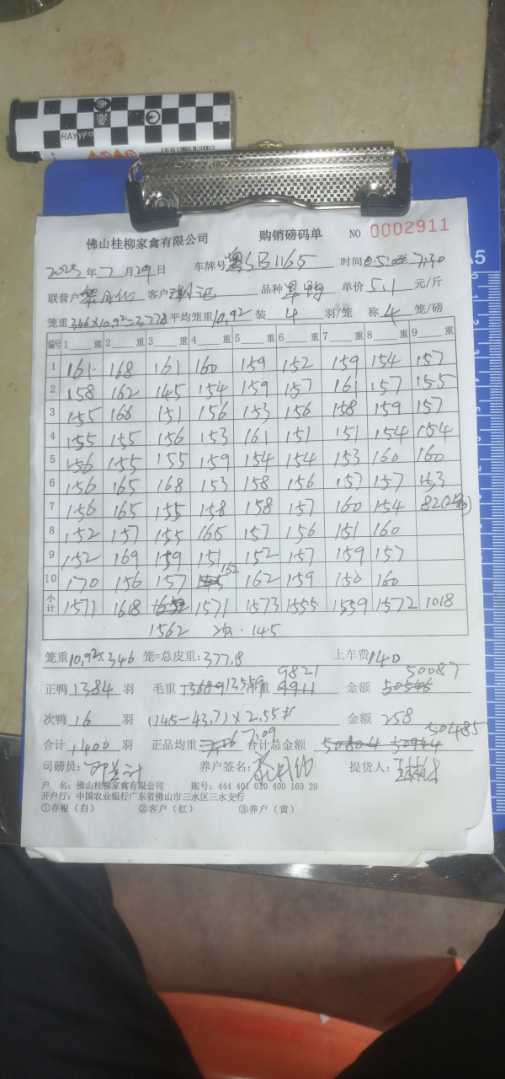 佛山桂柳家禽有限公司 购销磅码单 NO 0002911
2023年7月29日 车牌号 粤SB1165 时间 7:30
联营户 客户 品种 单价 5.1 元/斤
笼重 346×10.92=3,778 平均笼重 10.92 装 4 羽/笼 称 4 笼/磅
编号 1 重 2 重 3 重 4 重 5 重 6 重 7 重 8 重 9 重
1 161 168 161 160 159 152 159 154 157
2 158 162 145 154 159 157 161 157 155
3 155 168 151 156 153 156 158 159 157
4 155 155 156 153 161 151 151 154 154
5 156 155 155 159 154 154 153 160 160
6 156 165 168 153 158 156 157 157 153
7 156 165 155 158 158 157 160 154 82(2笼)
8 152 157 155 165 157 156 151 160
9 152 169 159 151 152 157 159 157
10 170 156 157 152 162 159 150 160
小计 1571 1618 1571 1573 1555 1559 1572 1018
1562 次·145
笼重 10.92×346 笼=总皮重: 377.8 上车费 140
正鸭 1384 羽 毛重 13599 净重 9821 金额 50087
次鸭 16 羽 (145-43.7)×2.55 金额 258
合计 1400 羽 正品均重 7.09 合计总金额 50485
司磅员: 养户签名: 提货人:
户 名: 佛山桂柳家禽有限公司 账号: 444 401 010 400 169 20
开户行: 中国农业银行广东省佛山市三水区三水支行
①存根(白) ②客户(红) ③养户(黄)